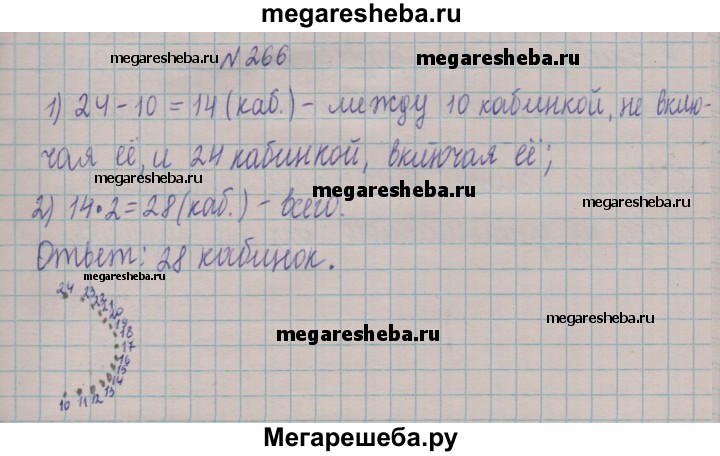 megaresheba.ru
megaresheba.ru № 266 megaresheba.ru
1) 24 - 10 = 14 (каб.) - между 10 кабинкой, не вклю-
чая её, и 24 кабинкой, включая её;
megaresheba.ru megaresheba.ru megaresheba.ru
2) 14 • 2 = 28 (каб.) - всего.
Ответ: 28 кабинок.
megaresheba.ru
24 23 22 21 20
19
18
17
16
15
14
10 11 12 13
megaresheba.ru megaresheba.ru
Мегарешеба.ру